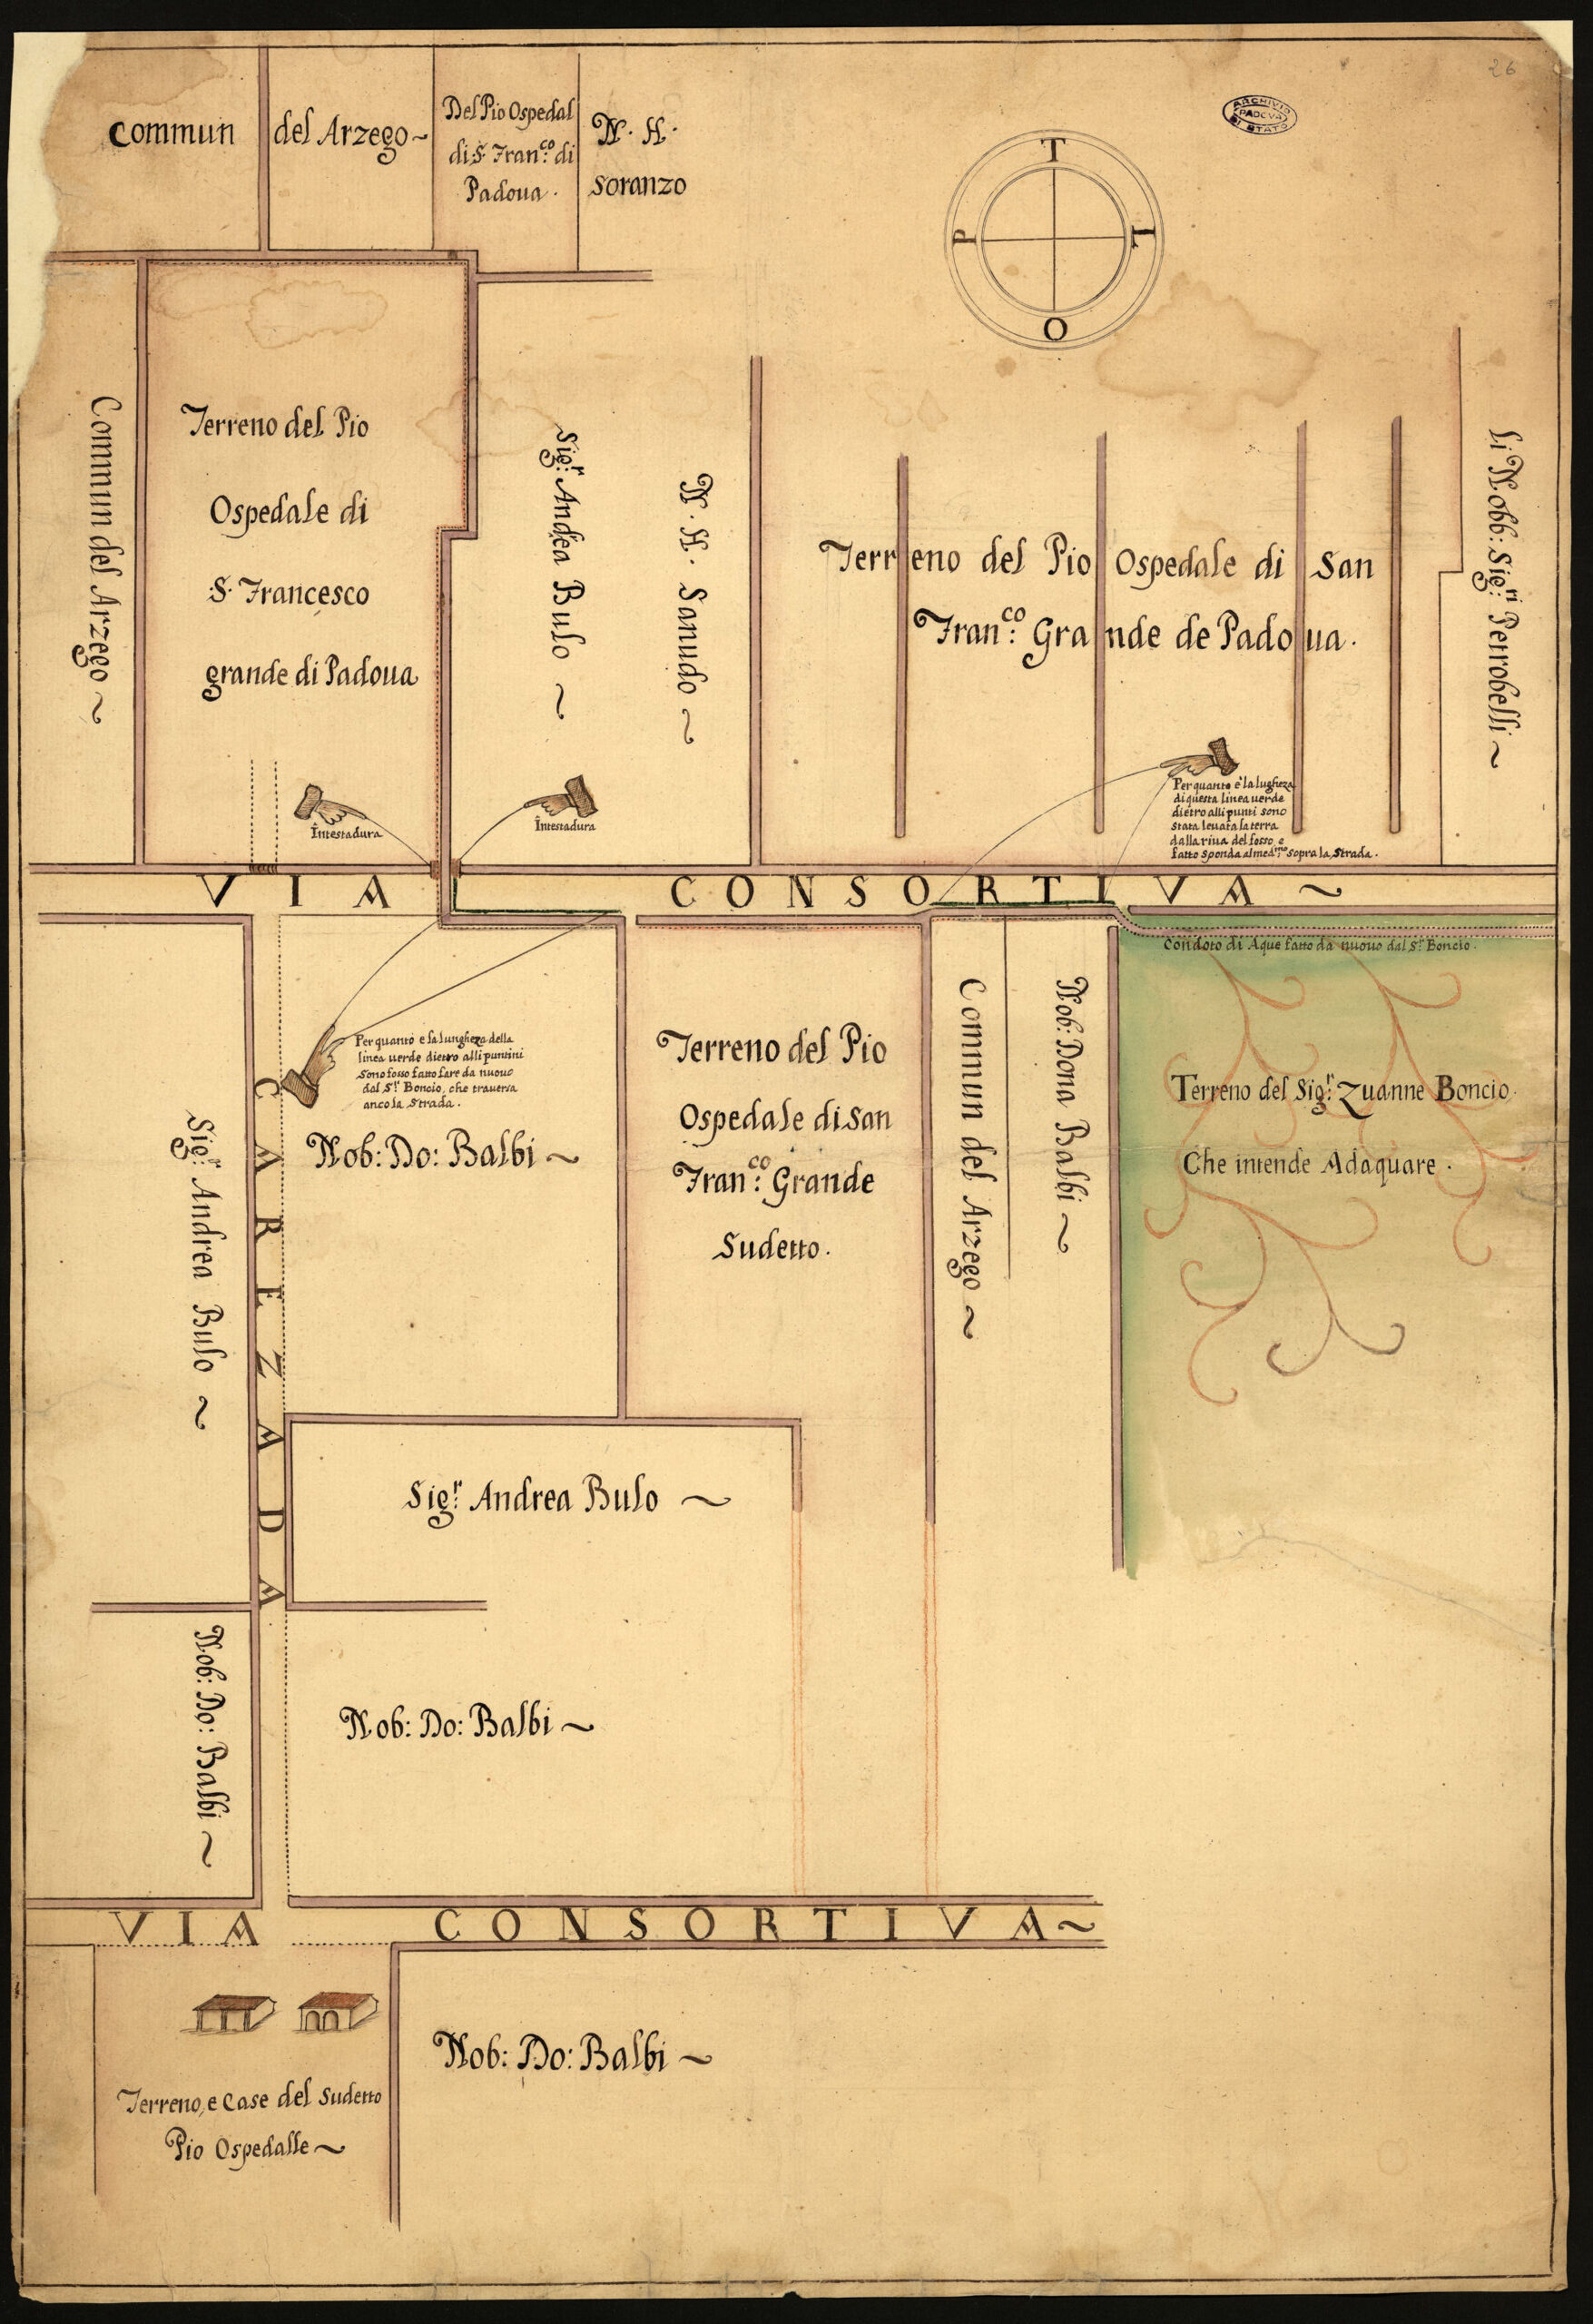 26
ARCHIVIO
PADOVA
DI STATO
Commun
del Arzego~
Del Pio Ospedal
di S. Fran:co di
Padoua.
N. H.
Soranzo
T
P
L
O
Commun del Arzego ~
Terreno del Pio
Ospedale di
S. Francesco
grande di Padoua
Intestadura
Sig:r Andrea Bulo ~
Intestadura
N. H. Sanudo ~
Terreno del Pio Ospedale di San
Fran:co Grande de Padoua.
Li Nobb: Sig:ri Petrobelli ~
Per quanto è la lugheza
di questa linea uerde
dietro alli punti sono
stata leuata la terra
dalla riua del fosso, e
fatto sponda al med:mo sopra la Strada.
VIA CONSORTIVA ~
Condoto di Aque fatto da nuouo dal S:r Boncio.
Per quanto e la lungheza della
linea uerde dietro alli puntini
sono fosso fatto fare da nuouo
dal S:r Boncio, che trauersa
anco la Strada.
Sig:r Andrea Bulo ~
CAREZADA
Nob: Do: Balbi ~
Terreno del Pio
Ospedale di San
Fran:co Grande
Sudetto.
Commun del Arzego ~
Nob: Dona Balbi ~
Terreno del Sig:r Zuanne Boncio.
Che intende Adaquare.
Sig:r Andrea Bulo ~
Nob: Do: Balbi ~
Nob: Do: Balbi ~
VIA CONSORTIVA~
Terreno, e Case del Sudetto
Pio Ospedalle ~
Nob: Do: Balbi ~